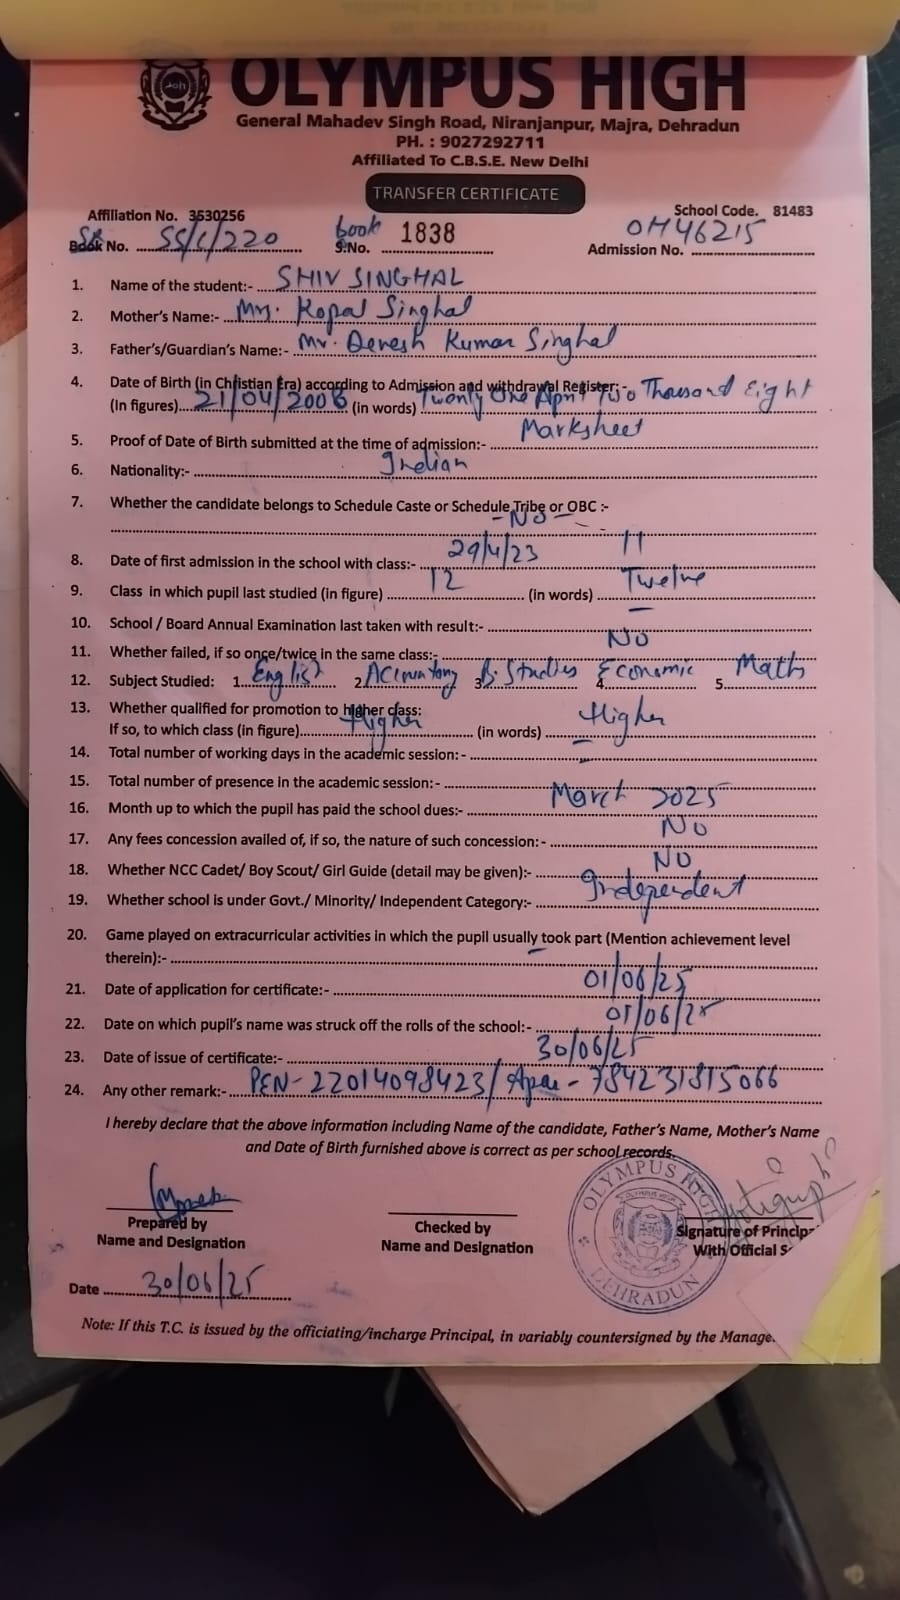 OLYMPUS HIGH
General Mahadev Singh Road, Niranjanpur, Majra, Dehradun
PH. : 9027292711
Affiliated To C.B.S.E. New Delhi
TRANSFER CERTIFICATE
Affiliation No. 3530256 School Code. 81483
SR Book No. SS/C/220 book S.No. 1838 Admission No. OH46215
1. Name of the student:- SHIV SINGHAL
2. Mother's Name:- Mrs. Kopal Singhal
3. Father's/Guardian's Name:- Mr. Devesh Kumar Singhal
4. Date of Birth (in Christian Era) according to Admission and withdrawal Register:-
(In figures) 21/04/2008 (in words) Twenty One April Two Thousand Eight
5. Proof of Date of Birth submitted at the time of admission:- Marksheet
6. Nationality:- Indian
7. Whether the candidate belongs to Schedule Caste or Schedule Tribe or OBC :-
- NO -
8. Date of first admission in the school with class:- 29/4/23 11
9. Class in which pupil last studied (in figure) 12 (in words) Twelve
10. School / Board Annual Examination last taken with result:- —
11. Whether failed, if so once/twice in the same class:- NO
12. Subject Studied: 1. English 2. Accountancy 3. B. Studies 4. Economic 5. Math
13. Whether qualified for promotion to higher class:
If so, to which class (in figure) Higher (in words) Higher
14. Total number of working days in the academic session: - —
15. Total number of presence in the academic session:- —
16. Month up to which the pupil has paid the school dues:- March 2025
17. Any fees concession availed of, if so, the nature of such concession:- NO
18. Whether NCC Cadet/ Boy Scout/ Girl Guide (detail may be given):- NO
19. Whether school is under Govt./ Minority/ Independent Category:- Independent
20. Game played on extracurricular activities in which the pupil usually took part (Mention achievement level
therein):- —
21. Date of application for certificate:- 01/06/25
22. Date on which pupil's name was struck off the rolls of the school:- 01/06/25
23. Date of issue of certificate:- 30/06/25
24. Any other remark:- PEN- 22014098423/ Apaar - 784231815066
I hereby declare that the above information including Name of the candidate, Father's Name, Mother's Name
and Date of Birth furnished above is correct as per school records.
OLYMPUS HIGH
DEHRADUN
Prepared by Checked by Signature of Princip
Name and Designation Name and Designation With Official S
Date 30/06/25
Note: If this T.C. is issued by the officiating/incharge Principal, in variably countersigned by the Manage.